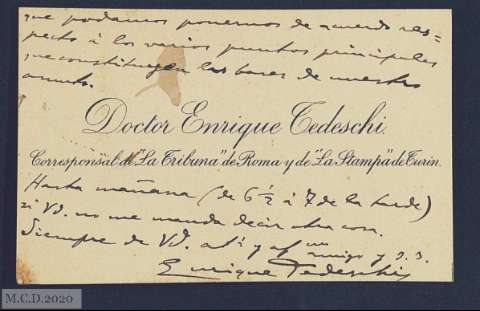 que podamos ponernos de acuerdo res=
pecto á los varios puntos principales
que constituyen las bases de nuestro
asunto.
Doctor Enrique Tedeschi.
Corresponsal de "La Tribuna" de Roma y de "La Stampa" de Turin.
Hasta mañana (de 6 1/2 á 7 de la tarde)
si Vd. no me manda decir otra cosa.
Siempre de Vd. at.º y af.mo amigo y s.s.
Enrique Tedeschi
M.C.D.2020